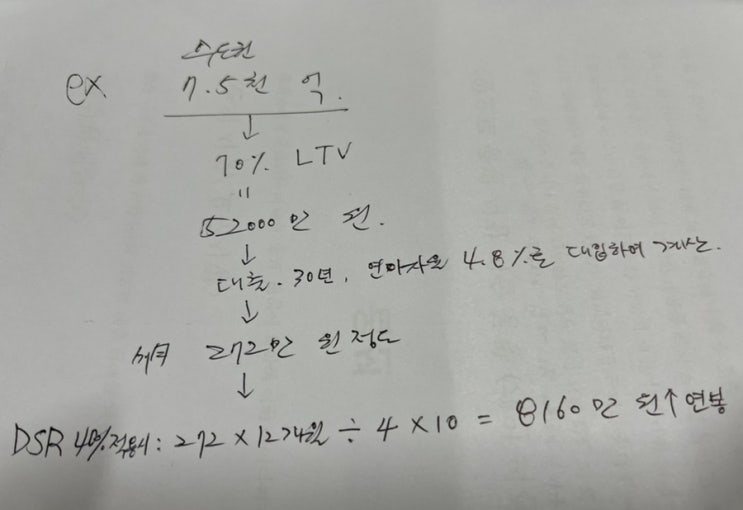 수도권
ex. 7.5천 억.
↓
70% LTV
=
52000만 원.
↓
대출. 30년, 연이자율 4.8%를 대입하여 계산.
↓
매월 272만 원 정도
↓
DSR 40%적용시: 272 × 12개월 ÷ 4 × 10 = 8160만 원↑ 연봉